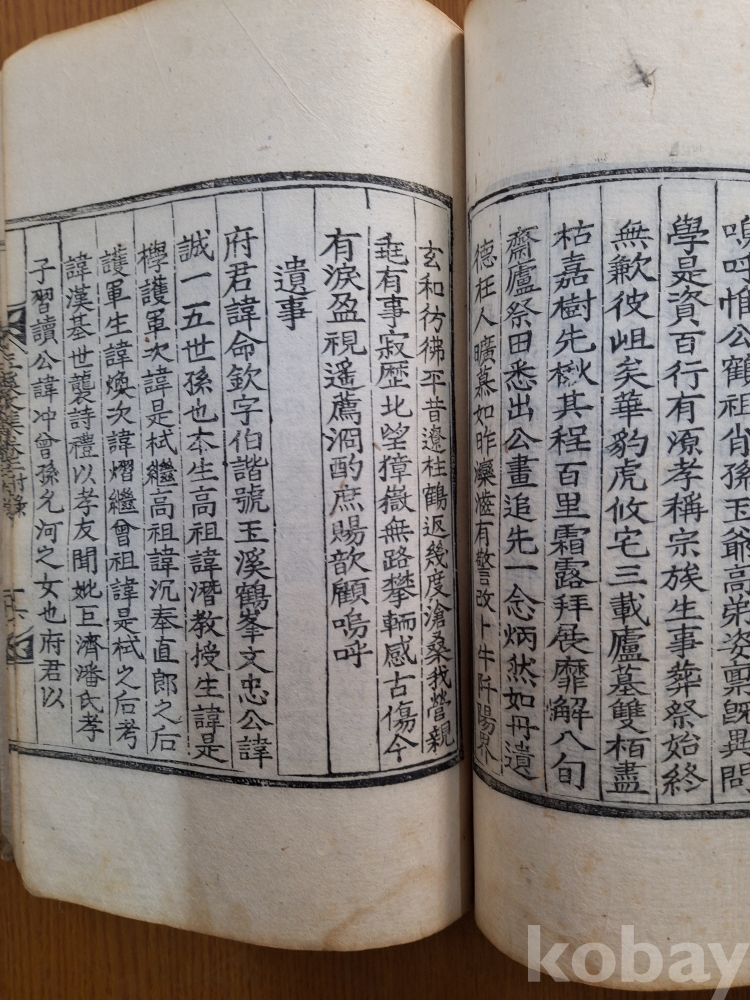 嗚呼惟公鶴祖肖孫玉爺高弟姿稟旣異問
學是資百行有源孝稱宗族生事葬祭始終
無歉彼岨矣華豹虎攸宅三載廬墓雙栢盡
枯嘉樹先楸其程百里霜露拜展靡解八旬
齋廬祭田悉出公畫追先一念炳然如丹遺
德在人曠慕如昨瀑 有警改卜牛阡陽界
玄和彷彿平昔遼柱鶴返幾度滄桑我營親
有事寂歷北望獐嶽無路攀輀感古傷今
有淚盈視遥薦泂酌庶賜歆顧嗚呼
遺事
府君諱命欽字伯諧號玉溪鶴峯文忠公諱
誠一五世孫也本生高祖諱潛教授生諱是
學護軍次諱是栻繼高祖諱沉奉直郎之后
護軍生諱煥次諱熠繼曾祖諱是栻之后考
諱漢基世襲詩禮以孝友聞妣巨濟潘氏孝
子習讀公諱冲曾孫允河之女也府君以
附錄
kobay